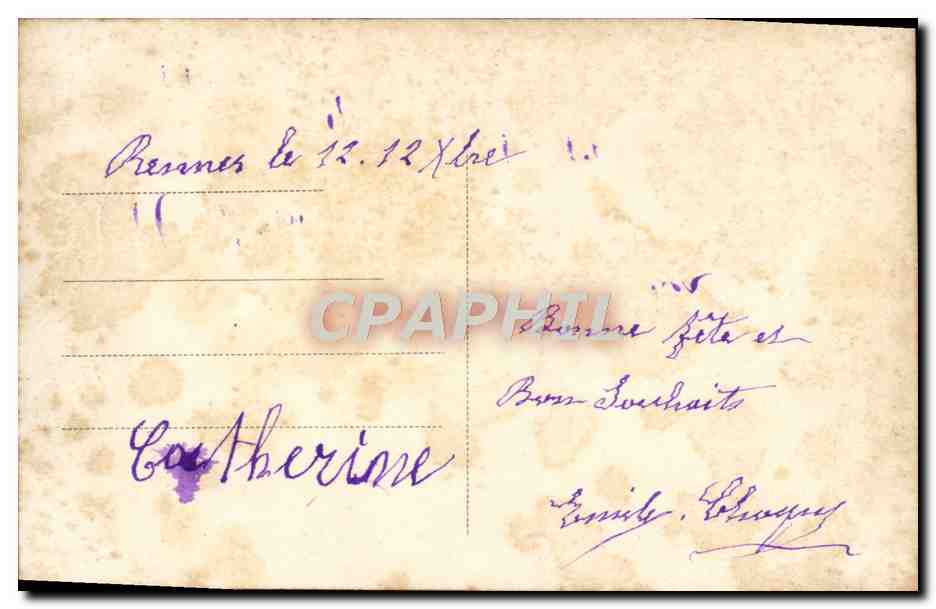 Rennes le 12.12 Xbre
CPAPHIL
Bonne fête et
Bon Souhaits
Catherine
Emile